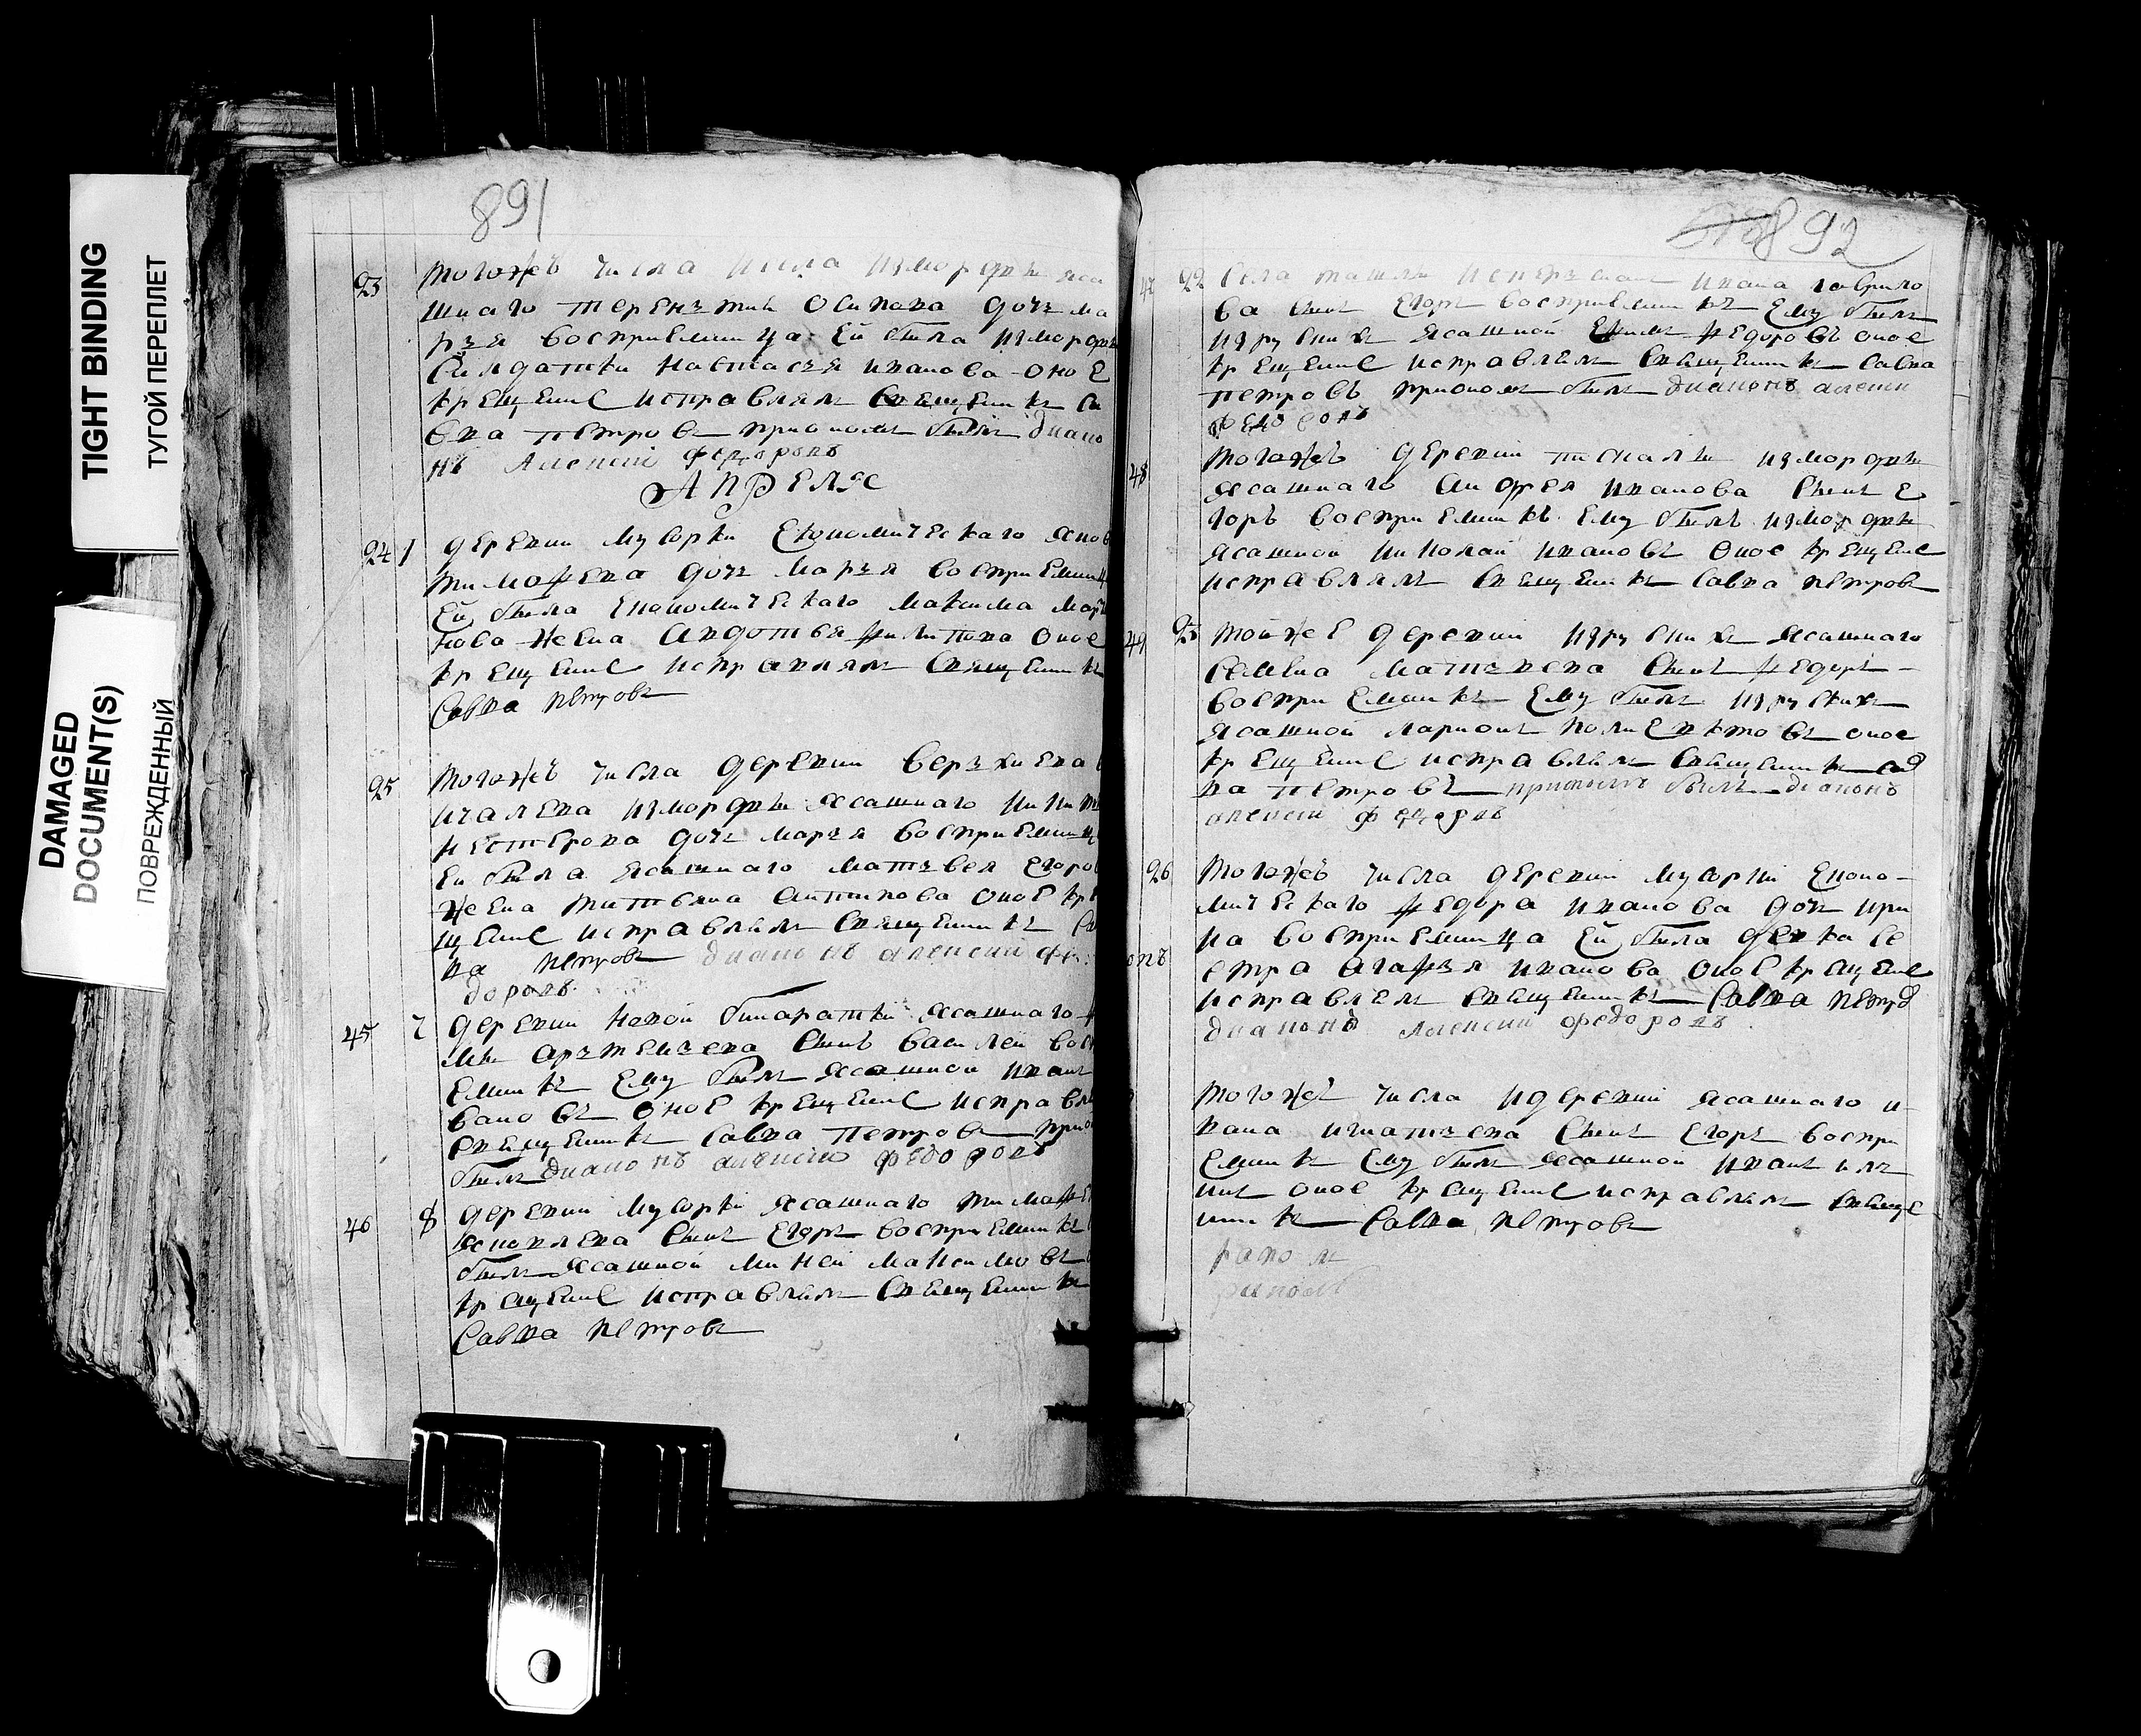 TIGHT BINDING
ТУГОЙ ПЕРЕПЛЕТ
DAMAGED
DOCUMENT(S)
ПОВРЕЖДЕННЫЙ
891
23 тогожъ числа измордвы яса
шнаго терентия осипова дочь ма
рья восприемница ей была измордвы
салдатки настасья иванова оное
крещение исправлялъ священникъ са
вва петровъ приономъ былъ диако
нъ алексей федоровъ
Апреля
24 1 деревни мусорки економическаго яков
тимофева дочь марья восприемниц
ей была економического максима март
нова жена авдотья филипова оное
крещение исправлялъ священникъ
савва петровъ
25 тогожъ числа деревни
измордвы ясашнаго никит
нестерова дочь марья восприемниц
ей была ясашнаго матвея егоров
жена татьяна антипова оное кре
щение исправлялъ священникъ са
ва петровъ диаконъ алексей фе
доровъ
45 7 деревни новой бинаратки ясашнаго
артемьева сынъ василей восп
емникъ ему былъ ясашной иванъ
вановъ оное крещение исправля
священникъ савва петровъ прио
былъ диаконъ алексей федоровъ
46 8 деревни мусорки ясашнаго тимофе
яковлева сынъ егоръ восприемникъ
былъ ясашной миней максимовъ
крещение исправлялъ священникъ
савва петровъ
892
47 22 села ташлы ивана гаврило
ва сынъ егоръ восприемникъ ему былъ
изруских ясашной ефимъ федоровъ оное
крещение исправлялъ священникъ савва
петровъ приономъ былъ диаконъ алексей
федоровъ
48 тогожъ деревни пискалы измордвы
ясашнаго андрея иванова сынъ е
горъ восприемникъ ему былъ измордвы
ясашной николай ивановъ оное крещение
исправлялъ священникъ савва петровъ
49 25 тойже деревни изруских ясашнаго
семена матвеева сынъ федоръ
восприемникъ ему былъ изруских
ясашной ларионъ поликтовъ оное
крещение исправлялъ священникъ сав
ва петровъ приономъ былъ диаконъ
алексей федоровъ
26 тогожъ числа деревни мусорки еконо
мическаго федора иванова дочь ири
на восприемница ей была девка се
стра агафья иванова оное крещение
исправлялъ священникъ савва петров
диаконъ алексей федоровъ
тогожъ числа идеревни ясашнаго и
вана игнатьева сынъ егоръ воспри
емникъ ему былъ ясашной иванъ иль
инъ оное крещение исправлялъ священ
никъ савва петровъ